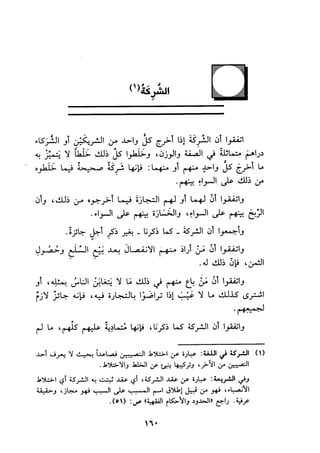 الشركة(١)
اتفقوا أن الشركة إذا أخرج كل واحد من الشريكين أو الشركاء
دراهم متماثلة في الصفة والوزن، وخلطوا كل ذلك خلطًا لا يتميز به
ما أخرج كل واحد منهم أو منهما: فإنها شركة صحيحة فيما خلطوه
من ذلك على السواء بينهم.
واتفقوا أن التجارة لهم أو لهما فيما أخرجوه من ذلك، وأن
الربح بينهم على السواء، والخسارة بينهم على السواء.
وأجمعوا أن الشركة - كما ذكرنا - بغير ذكر أجل جائزة.
واتفقوا أن من أراد منهم الانفصال بعد بيع السلع وحصول
الثمن، فإن ذلك له.
واتفقوا أن من باع منهم في ذلك ما لا يتغابن الناس بمثله، أو
اشترى كذلك ما لا عيب إذا تراضوا بالتجارة فيه، فإنه جائز لازم
لجميعهم.
واتفقوا أن الشركة كما ذكرنا، فإنها متمادية عليهم كلهم، ما لم
(١) الشركة في اللغة: عبارة عن اختلاط النصيبين فصاعدا بحيث لا يعرف أحد
النصيبين من الآخر، وتركيبها ينبئ عن الخلط والاختلاط.
وفي الشريعة: عبارة عن عقد الشركة، أي عقد تثبت به الشركة أي اختلاط
الأنصباء، فهو من قبيل إطلاق اسم المسبب على السبب فهو مجاز، وحقيقة
عرفية. راجع «الحدود والأحكام الفقهية» ص: (٥١).
١٦٠